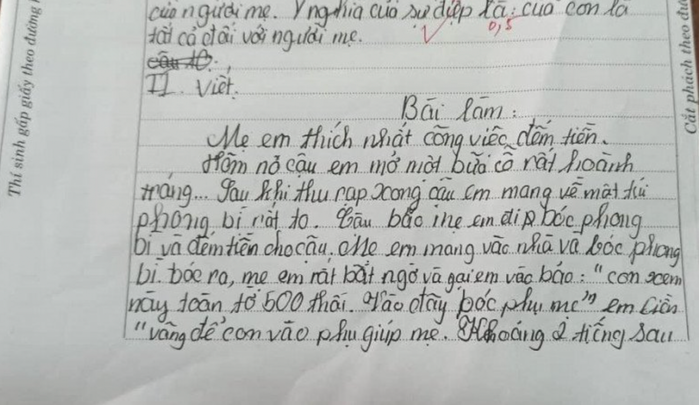 của người mẹ. Ý nghĩa của sự điệp là: cuả con là
tất cả đối với người mẹ.
0,5
câu 10:
II. Viết.
Bài làm:
Mẹ em thích nhất công việc đếm tiền.
Hôm nọ cậu em mở một bữa cỗ rất hoành
tráng... Sau khi thu rạp xong cậu em mang về một túi
phong bì rất to. Cậu bảo mẹ em bóc phong
bì và đếm tiền cho cậu. Mẹ em mang vào nhà và bóc phong
bì. bóc ra, mẹ em rất bất ngờ và gọi em vào bảo: "con xem
này toàn tờ 500 thôi. Vào đây bóc phụ mẹ" em liền
"vâng để con vào phụ giúp mẹ. Khoảng 2 tiếng sau
Thí sinh gấp giấy theo đường
Cắt phách theo